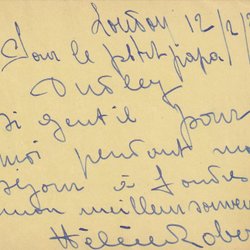 London 12/2/
Pour le petit papa
Dudley
si gentil pour
moi pendant mo
séjour à Londres
mon meilleur souven
Hélène Robe